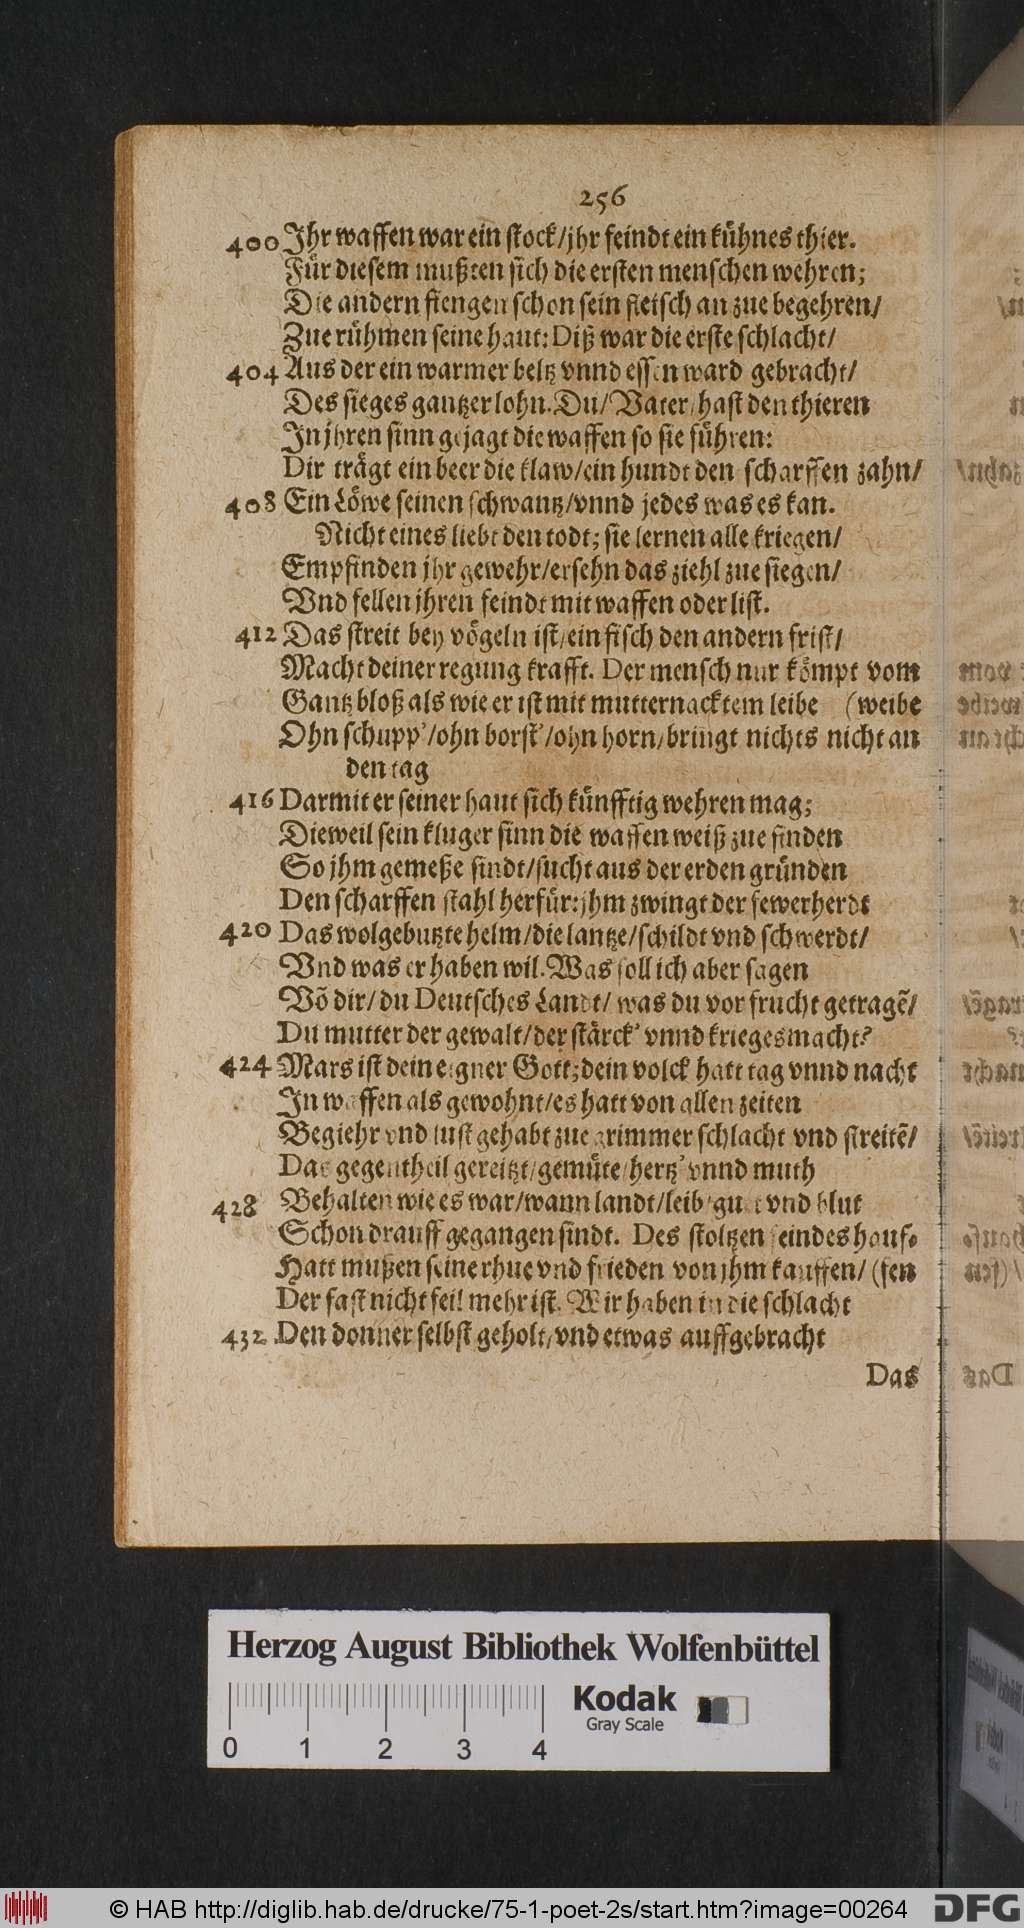 256
400 Jhr waffen war ein stock/jhr feindt ein kühnes thier.
Für diesem mußten sich die ersten menschen wehren;
Die andern fiengen schon sein fleisch an zue begehren/
Zue rühmen seine haut: Diß war die erste schlacht/
404 Aus der ein warmer beltz vnnd essen ward gebracht/
Des sieges gantzer lohn. Du/ Vater/ hast den thieren
Jn jhren sinn gejagt die waffen so sie führen:
Dir trägt ein beer die klaw/ein hundt den scharffen zahn/
408 Ein Löwe seinen schwantz/vnnd jedes was es kan.
Nicht eines liebt den todt; sie lernen alle kriegen/
Empfinden jhr gewehr/ersehn das ziehl zue siegen/
Vnd fellen jhren feindt mit waffen oder list.
412 Das streit bey vögeln ist/ein fisch den andern frist/
Macht deiner regung krafft. Der mensch nur kömpt vom
Gantz bloß als wie er ist mit mutternacktem leibe (weibe
Ohn schupp'/ohn borst'/ohn horn/bringt nichts nicht an
den tag
416 Darmit er seiner haut sich künfftig wehren mag;
Dieweil sein kluger sinn die waffen weiß zue finden
So jhm gemeße sindt/sucht aus der erden gründen
Den scharffen stahl herfür: jhm zwingt der fewerherdt
420 Das wolgebutzte helm/die lantze/schildt vnd schwerdt/
Vnd was er haben wil. Was soll ich aber sagen
Võ dir/ du Deutsches Landt/ was du vor frucht getragẽ/
Du mutter der gewalt/der stärck' vnnd kriegesmacht?
424 Mars ist dein eigner Gott; dein volck hatt tag vnnd nacht
Jn waffen als gewohnt/es hatt von allen zeiten
Begiehr vnd lust gehabt zue grimmer schlacht vnd streitẽ/
Das gegentheil gereitzt/gemüte/hertz' vnnd muth
428 Behalten wie es war/wann landt/leib/gut vnd blut
Schon drauff gegangen sindt. Des stoltzen feindes hauf-
Hatt mußen seine rhue vnd frieden von jhm kauffen/ (fen
Der fast nicht feil mehr ist. Wir haben in die schlacht
432 Den donner selbst geholt/vnd etwas auffgebracht
Das
Herzog August Bibliothek Wolfenbüttel
Kodak
Gray Scale
0 1 2 3 4
© HAB http://diglib.hab.de/drucke/75-1-poet-2s/start.htm?image=00264
DFG